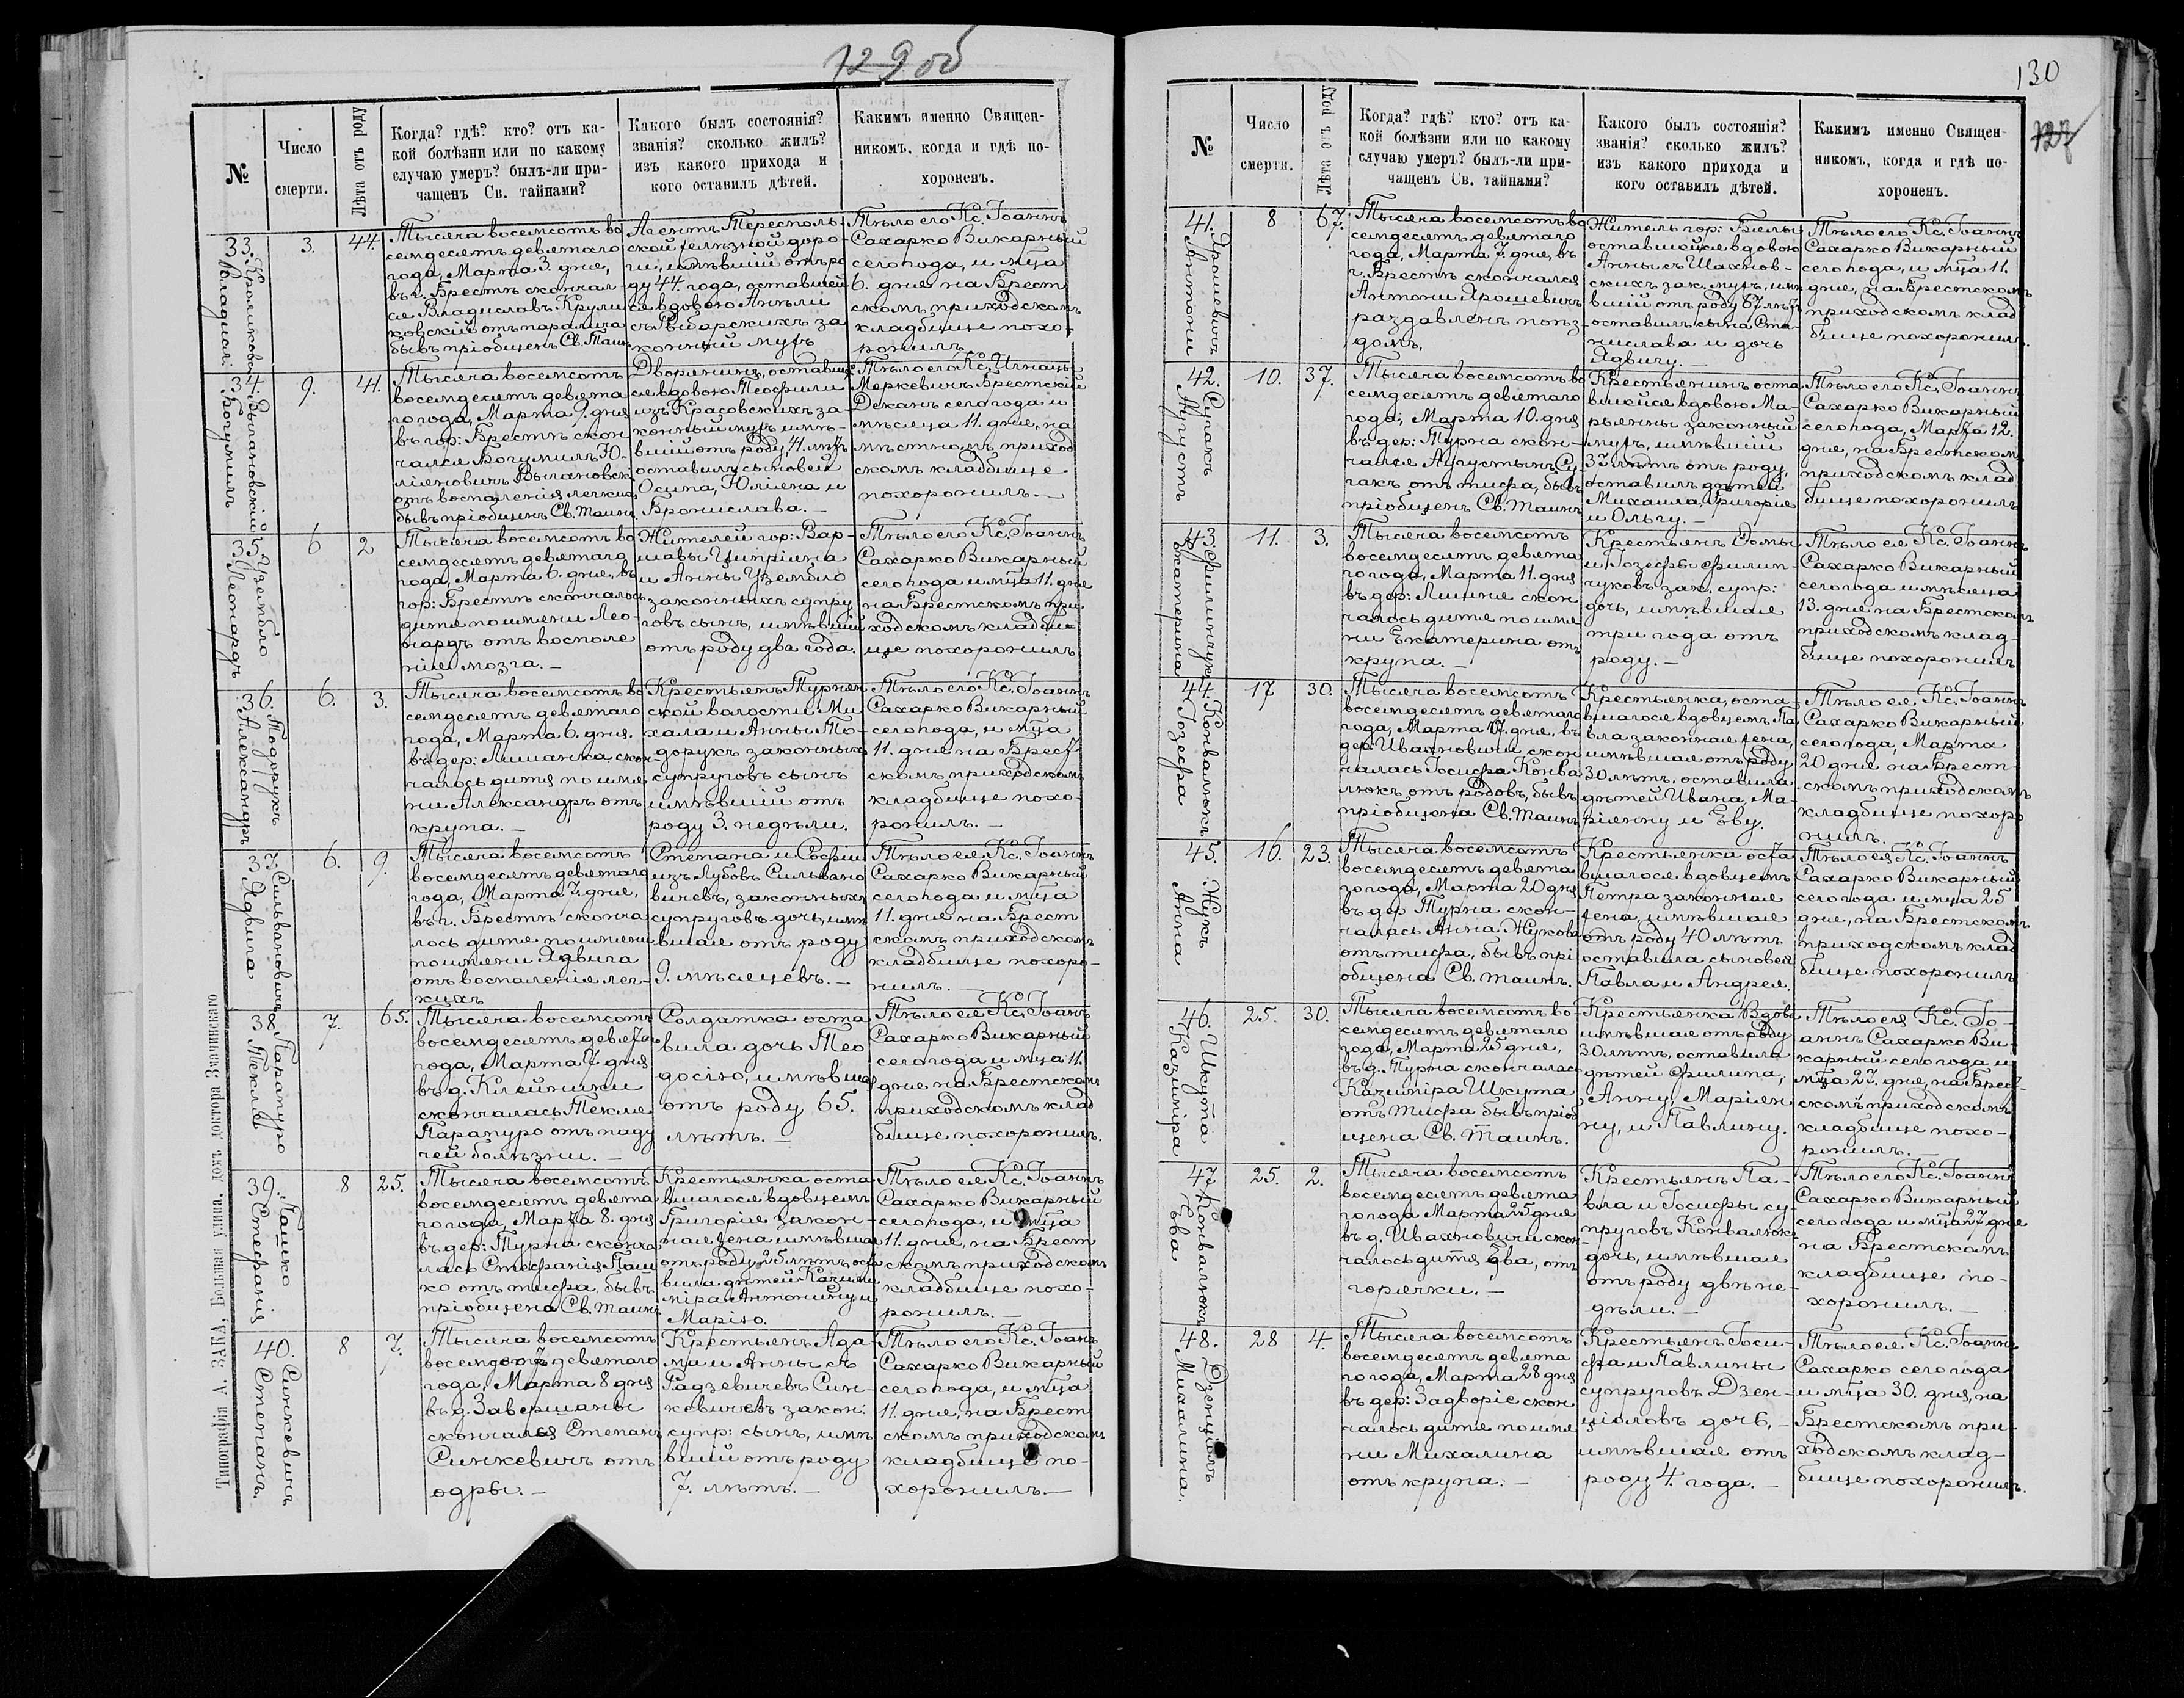 129 об
№
Число
смерти.
Лѣта отъ роду
Когда? гдѣ? кто? отъ ка-
кой болѣзни или по какому
случаю умеръ? былъ-ли при-
чащенъ Св. тайнами?
Какого былъ состоянія?
званія? сколько жилъ?
изъ какого прихода и
кого оставилъ дѣтей.
Какимъ именно Священ-
никомъ, когда и гдѣ по-
хороненъ.
33.
Круликовскій
Владислав
3.
44.
Тысяча восемсотъ во
семдесятъ девятаго
года, Марта 3. дня,
въ г. Брестѣ скончал-
ся Владиславъ Крули
ковскій отъ паралича
бывъ пріобщенъ Св. Таин.
Агентъ Тересполь
ской желѣзной доро-
ги, имѣвшій отъ ро
ду 44. года, оставшей
ся вдовою Анѣли
съ Рибарскихъ за
конный мужъ
Тѣло его Кс. Іоаннъ
Сахарко Викарный
сего года, и мца
6. дня на Брест
скомъ приходскомъ
кладбище похо
ронилъ
34.
Вычлановскій
Богумилъ
9.
41.
Тысяча восемсотъ
восемдесятъ девята
го года, Марта 9. дня
въ гор: Брестѣ скон
чался Богумилъ Ю-
ліяновичъ
отъ воспаленія легкихъ
бывъ пріобщенъ Св. Таинъ.
Дворянинъ, оставш
ся вдовою Теофили
изъ Красовскихъ за-
конный мужъ имѣ-
вшій отъ роду, 41. лѣтъ
оставилъ сыновей
Осипа, Юліяна и
Бронислава. —
Тѣло его Кс. Игнацы
Меркевичъ Брестскій
Деканъ сего года и
мѣсяца 11. дня, на
мѣстномъ приход
скомъ кладбище
похоронилъ. —
35.
Узембло
Леонардъ
6
2
Тысяча восемсотъ во
семдесятъ девятаго
года, Марта 6. дня, въ
гор: Брестѣ скончалось
дитя по имени Лео-
нардъ отъ воспале
нія мозга. —
Жителей гор: Вар-
шавы Ципріяна
и Анны Узембло
законныхъ супру
говъ сынъ, имѣвшій
отъ роду два года.
Тѣло его Кс. Іоаннъ
Сахарко Викарный
сего года и мца 11. дня
на Брестскомъ при
ходскомъ кладби
ще похоронилъ
36.
Тодорукъ
Александръ
6.
3.
Тысяча восемсотъ во
семдесятъ девятаго
года, Марта 6. дня.
въ дер: Лышанка скон-
чалось дитя по име
ни Александръ отъ
крупа. —
Крестьянъ Турнян
ской волости Ми
хала и Анны То-
дорукъ законныхъ
супруговъ сынъ
имѣвшій отъ
роду 3. недѣли.
Тѣло его Кс. Іоаннъ
Сахарко Викарный
сего года, и мца
11. дня на Брест
скомъ приходскомъ
кладбище похо-
ронилъ. —
37.
Сильвановичъ
Ядвига
6.
9.
Тысяча восемсотъ
восемдесятъ девятаго
года, Марта 7. дня,
въ г. Брестѣ сконча
лось дитя по имени
по имени Ядвига
отъ воспаленія лег-
кихъ
Степана и Софіи
изъ Лубовъ Сильвано
вичевъ, законныхъ
супруговъ дочь, имѣ
вшая отъ роду
9. мѣсяцевъ. —
Тѣло ея Кс. Іоаннъ
Сахарко Викарный
сего года и мца
11. дня на Брест
скомъ приходскомъ
кладбище похоро-
нилъ. —
38.
Парапуро
Текля
7.
65.
Тысяча восемсотъ
восемдесятъ девятаго
года, Марта 7. дня
въ д. Клейники
скончалась Текля
Парапуро отъ паду
чей болѣзни. —
Солдатка оста
вила дочь Тео
досію, имѣвшая
отъ роду 65.
лѣтъ. —
Тѣло ея Кс. Іоаннъ
Сахарко Викарный
сего года и мца 11.
дня на Брестскомъ
приходскомъ клад
бище похоронилъ.
39.
Пашко
Стефанія
8
25.
Тысяча восемсотъ
восемдесятъ девята
го года, Марта 8. дня
въ дер: Турна сконча
лась Стефанія Паш
ко отъ тифа, бывъ
пріобщена Св. таинъ
Крестьянка оста
вшагося вдовцемъ
Григорія закон-
ная жена имѣвшая
отъ роду 25 лѣтъ оста
вила дѣтей Казими
міра Антонину и
Марію.
Тѣло ея Кс. Іоаннъ
Сахарко Викарный
сего года, и мца
11. дня, на Брест
скомъ приходскомъ
кладбище похо-
ронилъ. —
40.
Синкевичъ
Степанъ.
8
7.
Тысяча восемсотъ
восемдесятъ девятаго
года, Марта 8 дня
въ д. Завершаны
скончался Степанъ
Синкевичъ отъ
одры. —
Крестьянъ Ада-
ма и Анны съ
Радзевичевъ Син-
кевичевъ закон:
супр: сынъ, имѣ
вшій отъ роду
7. лѣтъ. —
Тѣло его Кс. Іоаннъ
Сахарко Викарный
сего года, и мца
11. дня, на Брест
скомъ приходскомъ
кладбище по-
хоронилъ. —
Типографія А. ЗАКА, Большая улица. домъ доктора Значинскаго
130
127
№
Число
смерти.
Лѣта отъ роду
Когда? гдѣ? кто? отъ ка-
кой болѣзни или по какому
случаю умеръ? былъ-ли при-
чащенъ Св. тайнами?
Какого былъ состоянія?
званія? сколько жилъ?
изъ какого прихода и
кого оставилъ дѣтей.
Какимъ именно Священ-
никомъ, когда и гдѣ по-
хороненъ.
41.
Ярошевичъ
Антони
8
67.
Тысяча восемсотъ во
семдесятъ девятаго
года, Марта 7. дня, въ
г. Брестѣ скончался
Антони Ярошевичъ
раздавленъ поѣз-
домъ,
Житель гор: Бялы
оставшойся вдовою
Анны съ Шахнов-
скихъ зак. мужъ, имѣ
вшій отъ роду 67 лѣтъ
оставилъ сына Ста-
нислава и дочь
Ядвигу. —
Тѣло его Кс. Іоаннъ
Сахарко Викарный
сего года, и мца 11.
дня, на Брестскомъ
приходскомъ клад
бище похоронилъ.
42.
Сугакъ
Августъ
10.
37.
Тысяча восемсотъ во
семдесятъ девятаго
года, Марта 10. дня
въ дер: Турна скон-
чался Аугустынъ Су
гакъ отъ тифа, бывъ
пріобщенъ Св. таинъ
Крестьянинъ оста
вшойся вдовою Ма-
рьянны законный
мужъ, имѣвшій
37 лѣтъ отъ роду,
оставилъ дѣтей
Михаила, Григорія
и Ольгу. —
Тѣло его Кс. Іоаннъ
Сахарко Викарный
сего года, Марта 12.
дня, на Брестскомъ
приходскомъ клад
бище похоронилъ
43.
Филипчукъ
Екатерина
11.
3.
Тысяча восемсотъ
восемдесятъ девята
го года, Марта 11. дня
въ дер: Лищне скон
чалось дитя по име
ни Екатерина отъ
крупа. —
Крестьянъ Домы
и Іозефы Филип-
чуковъ зак, супр:
дочь, имѣвшая
три года отъ
роду. —
Тѣло ея Кс. Іоаннъ
Сахарко Викарный
сего года и мѣсяца
13. дня на Брестскомъ
приходскомъ клад-
бище похоронилъ
44.
Конвалюкъ
Іозефа
17
30.
Тысяча восемсотъ
восемдесятъ девятаго
года, Марта 17. дня, въ
дер Ивахновичи скон
чалась Іосифа Конва
люкъ отъ родовъ, бывъ
пріобщена Св. Таинъ
Крестьянка, оста
вшагося вдовцемъ Па
вла законная жена,
имѣвшая отъ роду
30 лѣтъ, оставила
дѣтей Ивана, Ма-
ріянну и Еву.
Тѣло ея Кс. Іоаннъ
Сахарко Викарный
сего года, Марта
20 дня на Брест-
скомъ приходскомъ
кладбище похоро
нилъ.
45.
Жукъ
Анна
16.
23.
Тысяча восемсотъ
восемдесятъ девята
го года, Марта 20 дня
въ дер Турна скон-
чалась Анна Жукова
отъ тифа, бывъ прі
общена Св. таинъ.
Крестьянка оста
вшагося вдовцемъ
Петра законная
жена, имѣвшая
отъ роду 40 лѣтъ
оставила сыновей
Павла и Андрея.
Тѣло ея Кс. Іоаннъ
Сахарко Викарный
сего года и мца 25
дня, на Брестскомъ
приходскомъ клад
бище похоронилъ
46.
Шкута
Казиміра
25.
30.
Тысяча восемсотъ во-
семдесятъ девятаго
года, Марта 25 дня,
въ д. Турна скончалась
Казиміра Шкута
отъ Тифа бывъ пріоб
щена Св. таинъ.
Крестьянка Вдова
имѣвшая отъ роду
30 лѣтъ, оставила
дѣтей Филипа,
Анну, Маріян
ну, и Павлину.
Тѣло ея Кс. Іо-
аннъ Сахарко Ви-
карный сего года и
мца 27. дня, на Брест-
скомъ приходскомъ
кладбище похо-
ронилъ. —
47.
Конвалюкъ
Ева
25.
2.
Тысяча восемсотъ
восемдесятъ девята
го года Марта 25 дня
въ д. Ивахновичи скон-
чалось дитя Ева, отъ
горячки. —
Крестьянъ Па-
вла и Іосифы су-
пруговъ Конвалюкъ
дочь, имѣвшая
отъ роду двѣ не-
дѣли. —
Тѣло его Кс. Іоаннъ
Сахарко Викарный
сего года и мца 27 дня
на Брестскомъ
кладбище по-
хоронилъ. —
48.
Дзенціолъ
Михалина.
28
4.
Тысяча восемсотъ
восемдесятъ девята
го года, Марта 28 дня
въ дер: Задворіе скон
чалось дитя по име
ни Михалина
отъ крупа. —
Крестьянъ Іоси-
фа и Павлины
супруговъ Дзен-
ціоловъ дочь, —
имѣвшая отъ
роду 4. года. —
Тѣло ея Кс. Іоаннъ
Сахарко сего года
и мца 30. дня, на
Брестскомъ при-
ходскомъ клад-
бище похоронилъ.